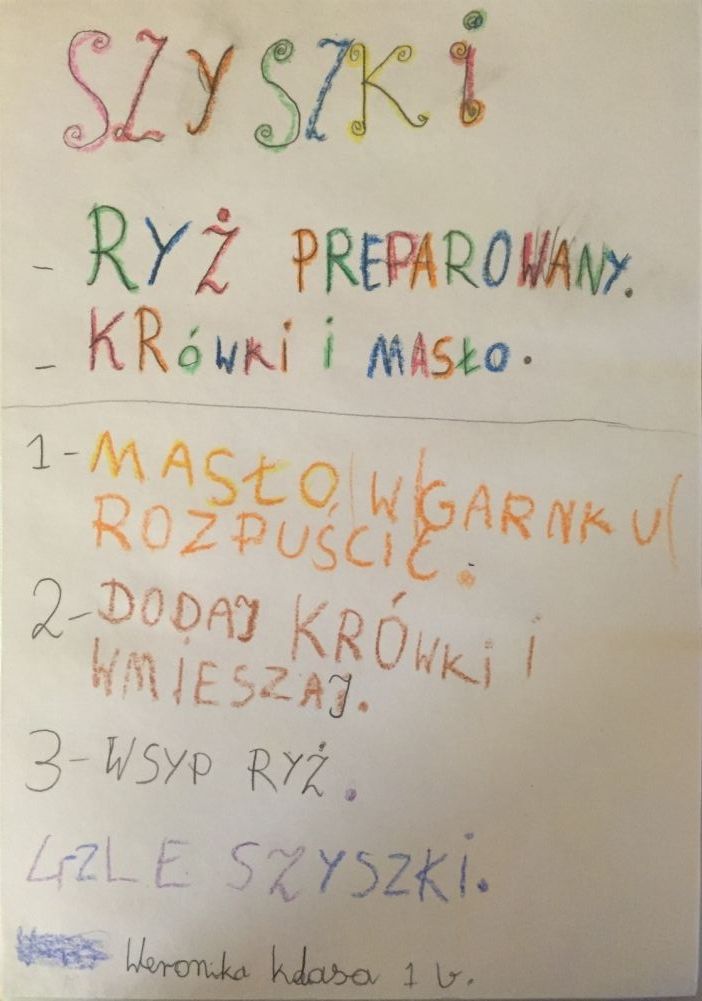 SZYSZKI
- RYŻ PREPAROWANY.
- KRÓWKI i MASŁO.
1- MASŁO W GARNKU
ROZPUŚCIĆ.
2- DODAJ KRÓWKI I
WMIESZAJ.
3- WSYP RYŻ.
4 ZLE SZYSZKI.
Weronika klasa 1 b.